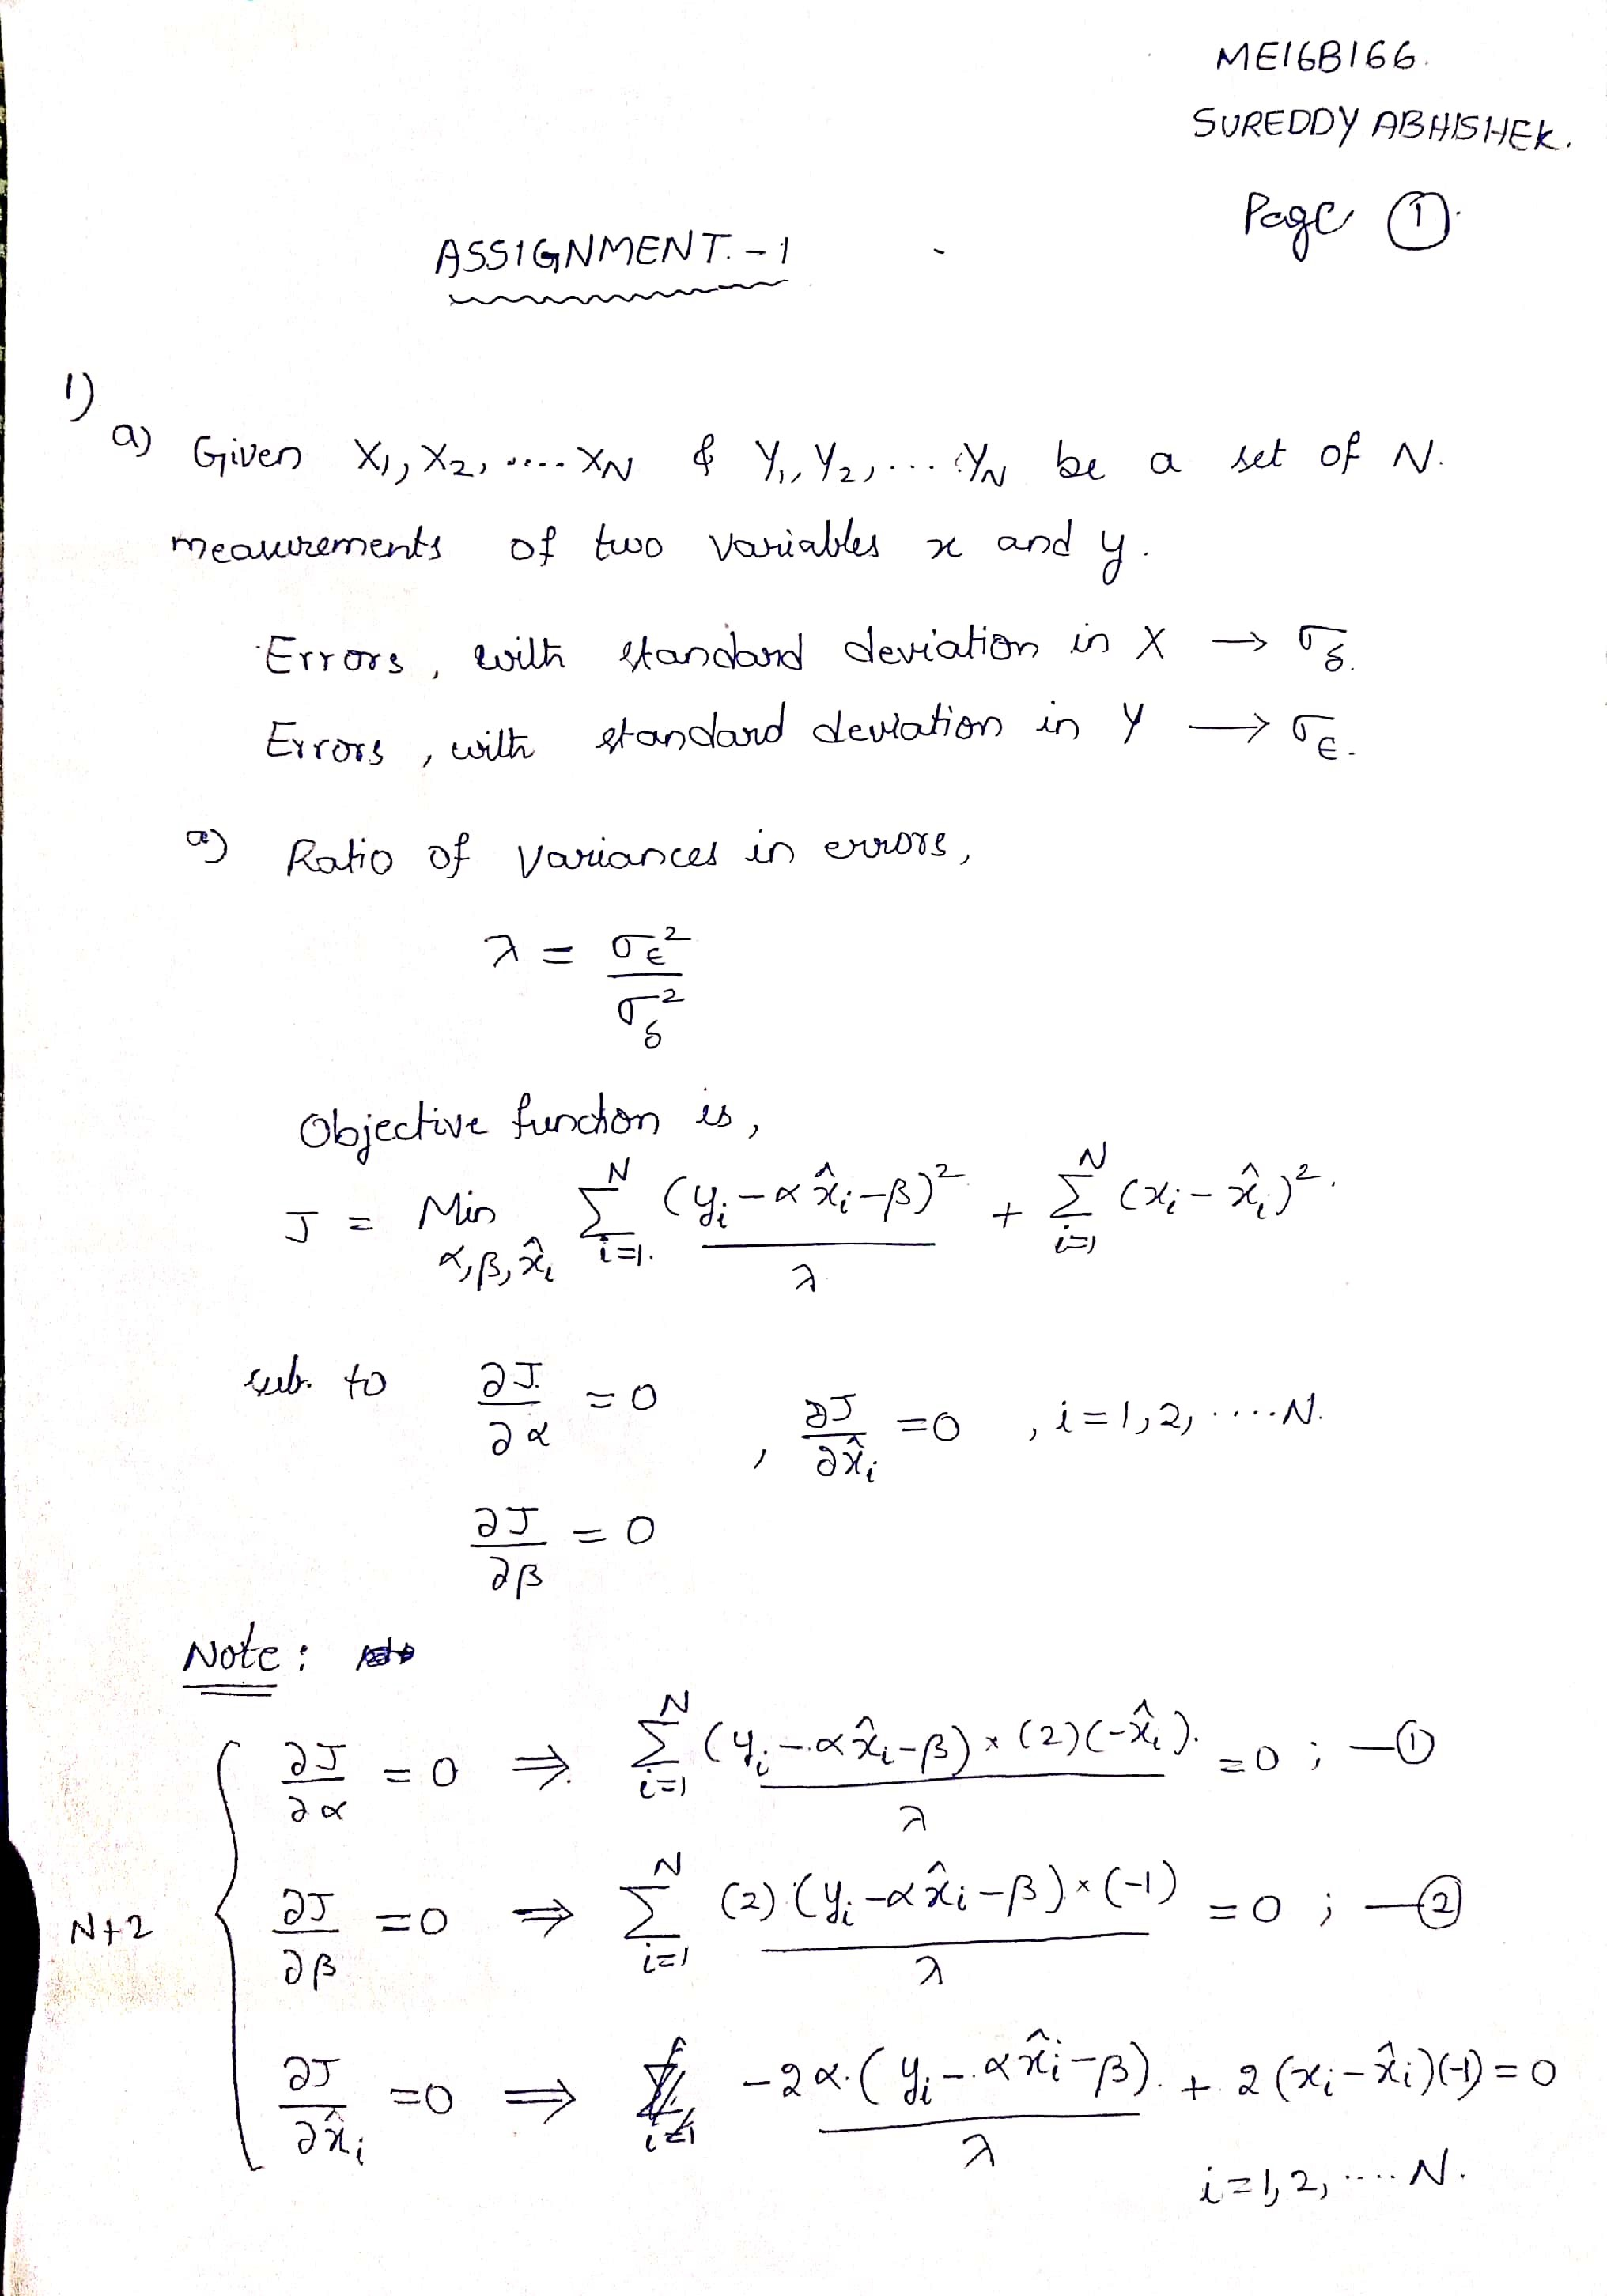 ME16B166.
SUREDDY ABHISHEK.
Page ①.
ASSIGNMENT.-1
1)
a) Given X₁, X₂, .... X_N & Y₁, Y₂, ... Y_N be a set of N.
meaurements of two variables x and y.
Errors, with standard deviation in X → σ_δ.
Errors, with standard deviation in Y → σ_ϵ.
a) Ratio of variances in errors,
λ = σ_ϵ² / σ_δ²
Objective function is,
J = Min_{α,β,x̂_i} Σ_{i=1}^{N} (y_i - αx̂_i - β)² / λ + Σ_{i=1}^{N} (x_i - x̂_i)².
sub. to ∂J/∂α = 0 , ∂J/∂x̂_i = 0 , i = 1, 2, ....N.
∂J/∂β = 0
Note:
∂J/∂α = 0 ⇒ Σ_{i=1}^{N} (y_i - αx̂_i - β) × (2)(-x̂_i) / λ = 0 ; —①
N+2 { ∂J/∂β = 0 ⇒ Σ_{i=1}^{N} (2) (y_i - αx̂_i - β) × (-1) / λ = 0 ; —②
∂J/∂x̂_i = 0 ⇒ -2α.(y_i - αx̂_i - β). / λ + 2(x_i - x̂_i)(-1) = 0
i = 1, 2, .... N.